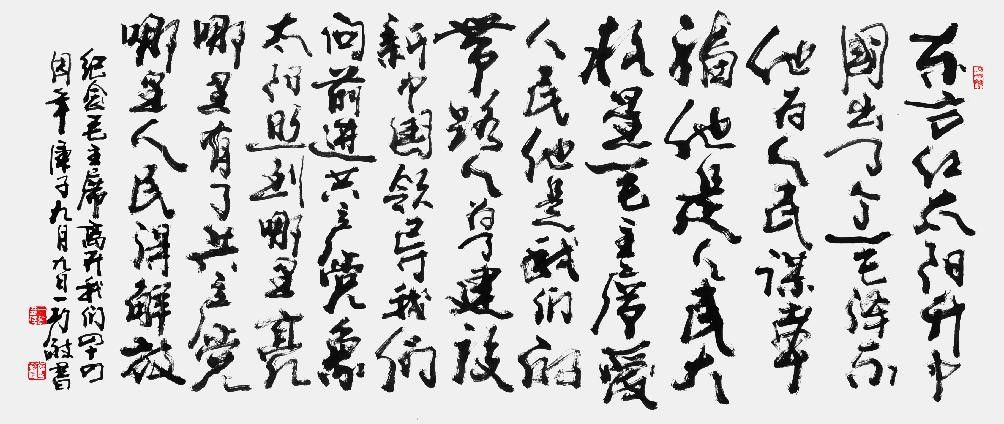 东方红太阳升中
國出了个毛泽东
他为人民谋幸
福他是人民大
救星毛主席爱
人民他是我们的
带路人为了建设
新中國领导我们
向前进共产党象
太阳照到哪里亮
哪里有了共产党
哪里人民得解放
纪念毛主席离开我们四十四
周年庚子九月九日一敬書